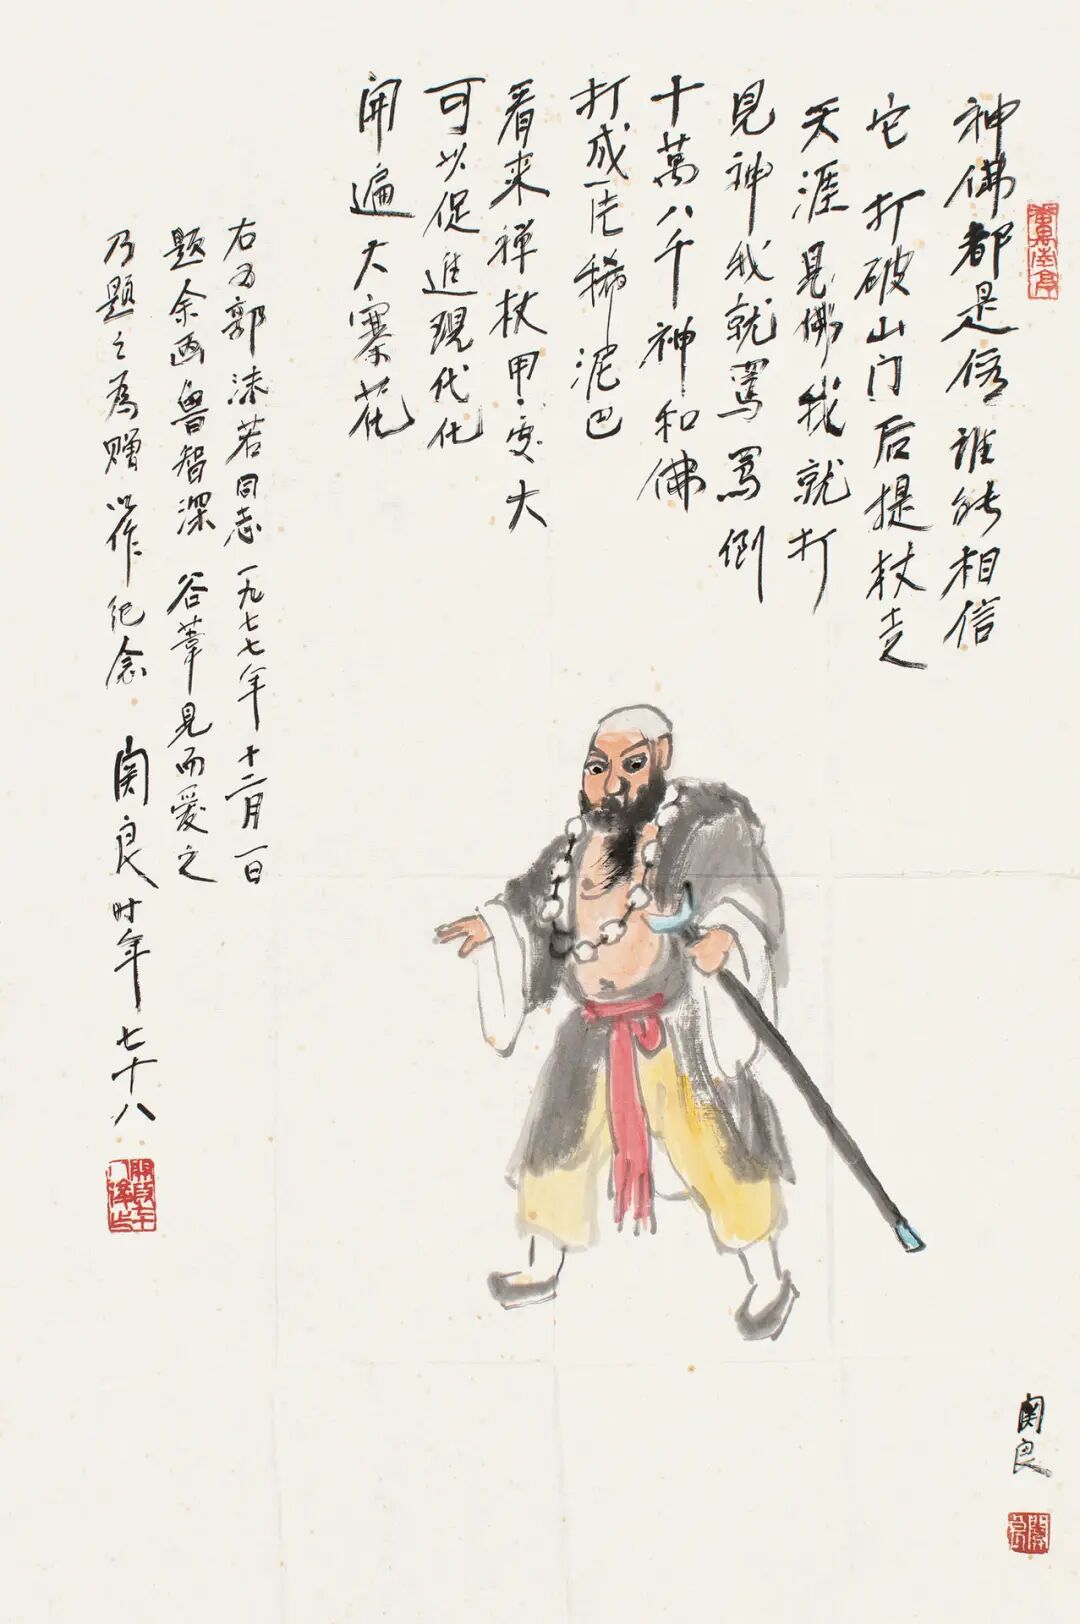 神佛都是假誰能相信
它打破山门后提杖走
天涯見佛我就打
見神我就罵罵倒
十萬八千神和佛
打成一片稀泥巴
看来禅杖用处大
可以促進現代化
開遍大寨花
右为郭沫若同志一九七七年十二月一日
题余画魯智深 谷葦見而爱之
乃題之為赠以作纪念 関良时年七十八
関良